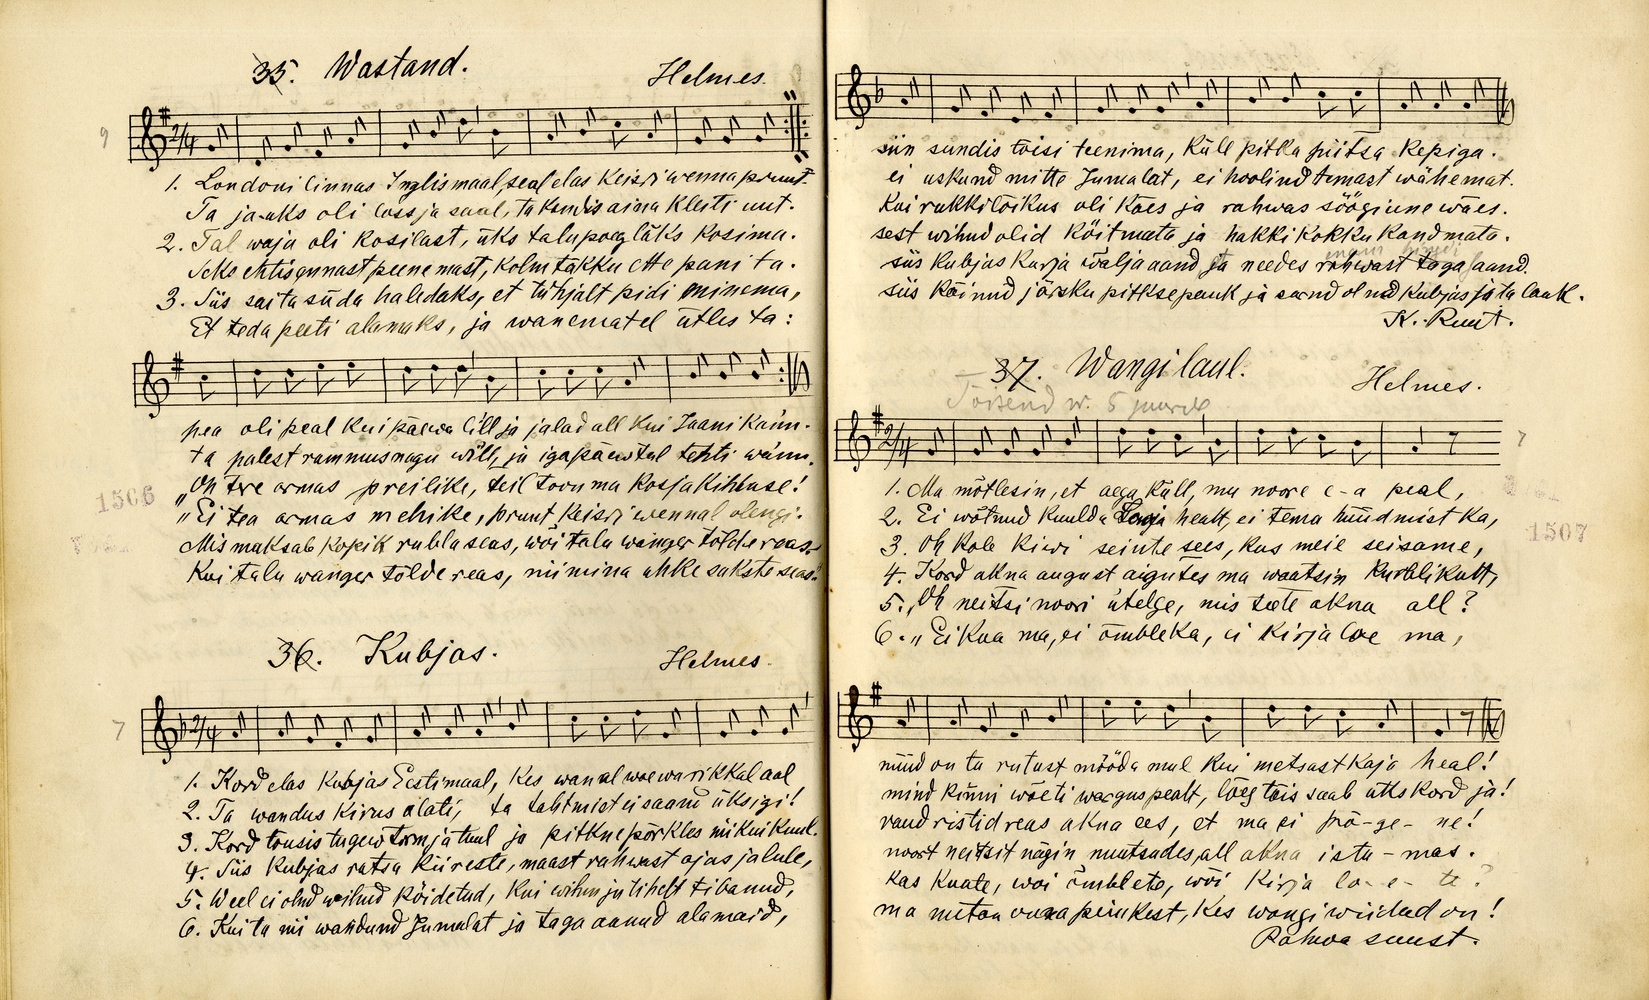 35. Wastand. Helmes.
9
1. Londoni linnas Inglismaal, seal elas Keisri wenna pruut.
Ta jauks oli loss ja saal, ta kandis aina kleiti uut.
2. Tal waja oli kosilast, üks talupoeg läks kosima.
Seks ehtis ennast peenemast, kolm täkku ette pani ta.
3. Siis sai ta süda haledaks, et tühjalt pidi minema,
Et teda peeti alamaks, ja wanematel ütles ta:
pea oli peal kui päewa lill ja jalad all kui Jaani
ta palest rammus nagu will, ja igapäew tal tehti
"Oh tere armas preilike, teil toon ma kosja kihluse!
"Ei tea armas mehike, pruut Keisri wennal olengi.
Mis maksab kopik rubla seas, wõi talu wanger tõlde reas.
Kui talu wanger tõlde reas, nii mina uhke sakste seas."
1506
36. Kubjas. Helmes.
7
1. Kord elas kubjas Eestimaal, kes wanal waewarikkal aal
2. Ta wandus kirus alati, ta tahtmist ei saand üksigi!
3. Kord tõusis tugew torm ja tuul ja pitkne põrkles nii kui kuul.
4. Siis kubjas ratsa kiireste, maast rahwast ajas jalule,
5. Weel ei olnd wihud köidetud, kui wihm ju tihelt tibanud,
6. Kui ta nii wandund Jumalat ja taga aanud alamaid,
siin sundis tõisi teenima, küll pitka piitsa kepiga.
ei uskund mitte Jumalat, ei hoolind temast wähemat.
kui rukkilõikus oli käes ja rahwas söögiune wäes.
sest wihud olid köitmata ja hakki kokku kandmata.
siis kubjas karja wälja aand ja needes rahwast taga aand.
siis käinud järsku pitkse pauk ja surnd olnud kubjas ja ta lauk.
K. Ruut.
37. Wangi laul. Helmes.
Tõisend nr. 5 juurde
7
1. Ma mõtlesin, et aega küll, mu noore e-a peal,
2. Ei wõtnud kuulda Looja healt, ei tema hüüdmist ka,
3. Oh kole kiwi seinte sees, kus meie seisame,
4. Kord akna august aigutes ma waatsin kurblikult,
5. "Oh neitsi noori ütelge, mis teete akna all?
6. "Ei kua ma, ei õmble ka, ei kirja loe ma,
1507
nüüd on ta rutust mööda mul kui metsast kaja heal!
mind kinni wõeti wargus pealt, lõeg täis saab ükskord ja!
raud ristid reas akna ees, et ma ei põ-ge-ne!
noort neitsit nägin nuutsudes, all akna istu-mas.
kas kuate, wõi õmblete, wõi kirja lo-e-te?
ma nutan oma peiukest, kes wangi wiidud on!
Rahwa suust.